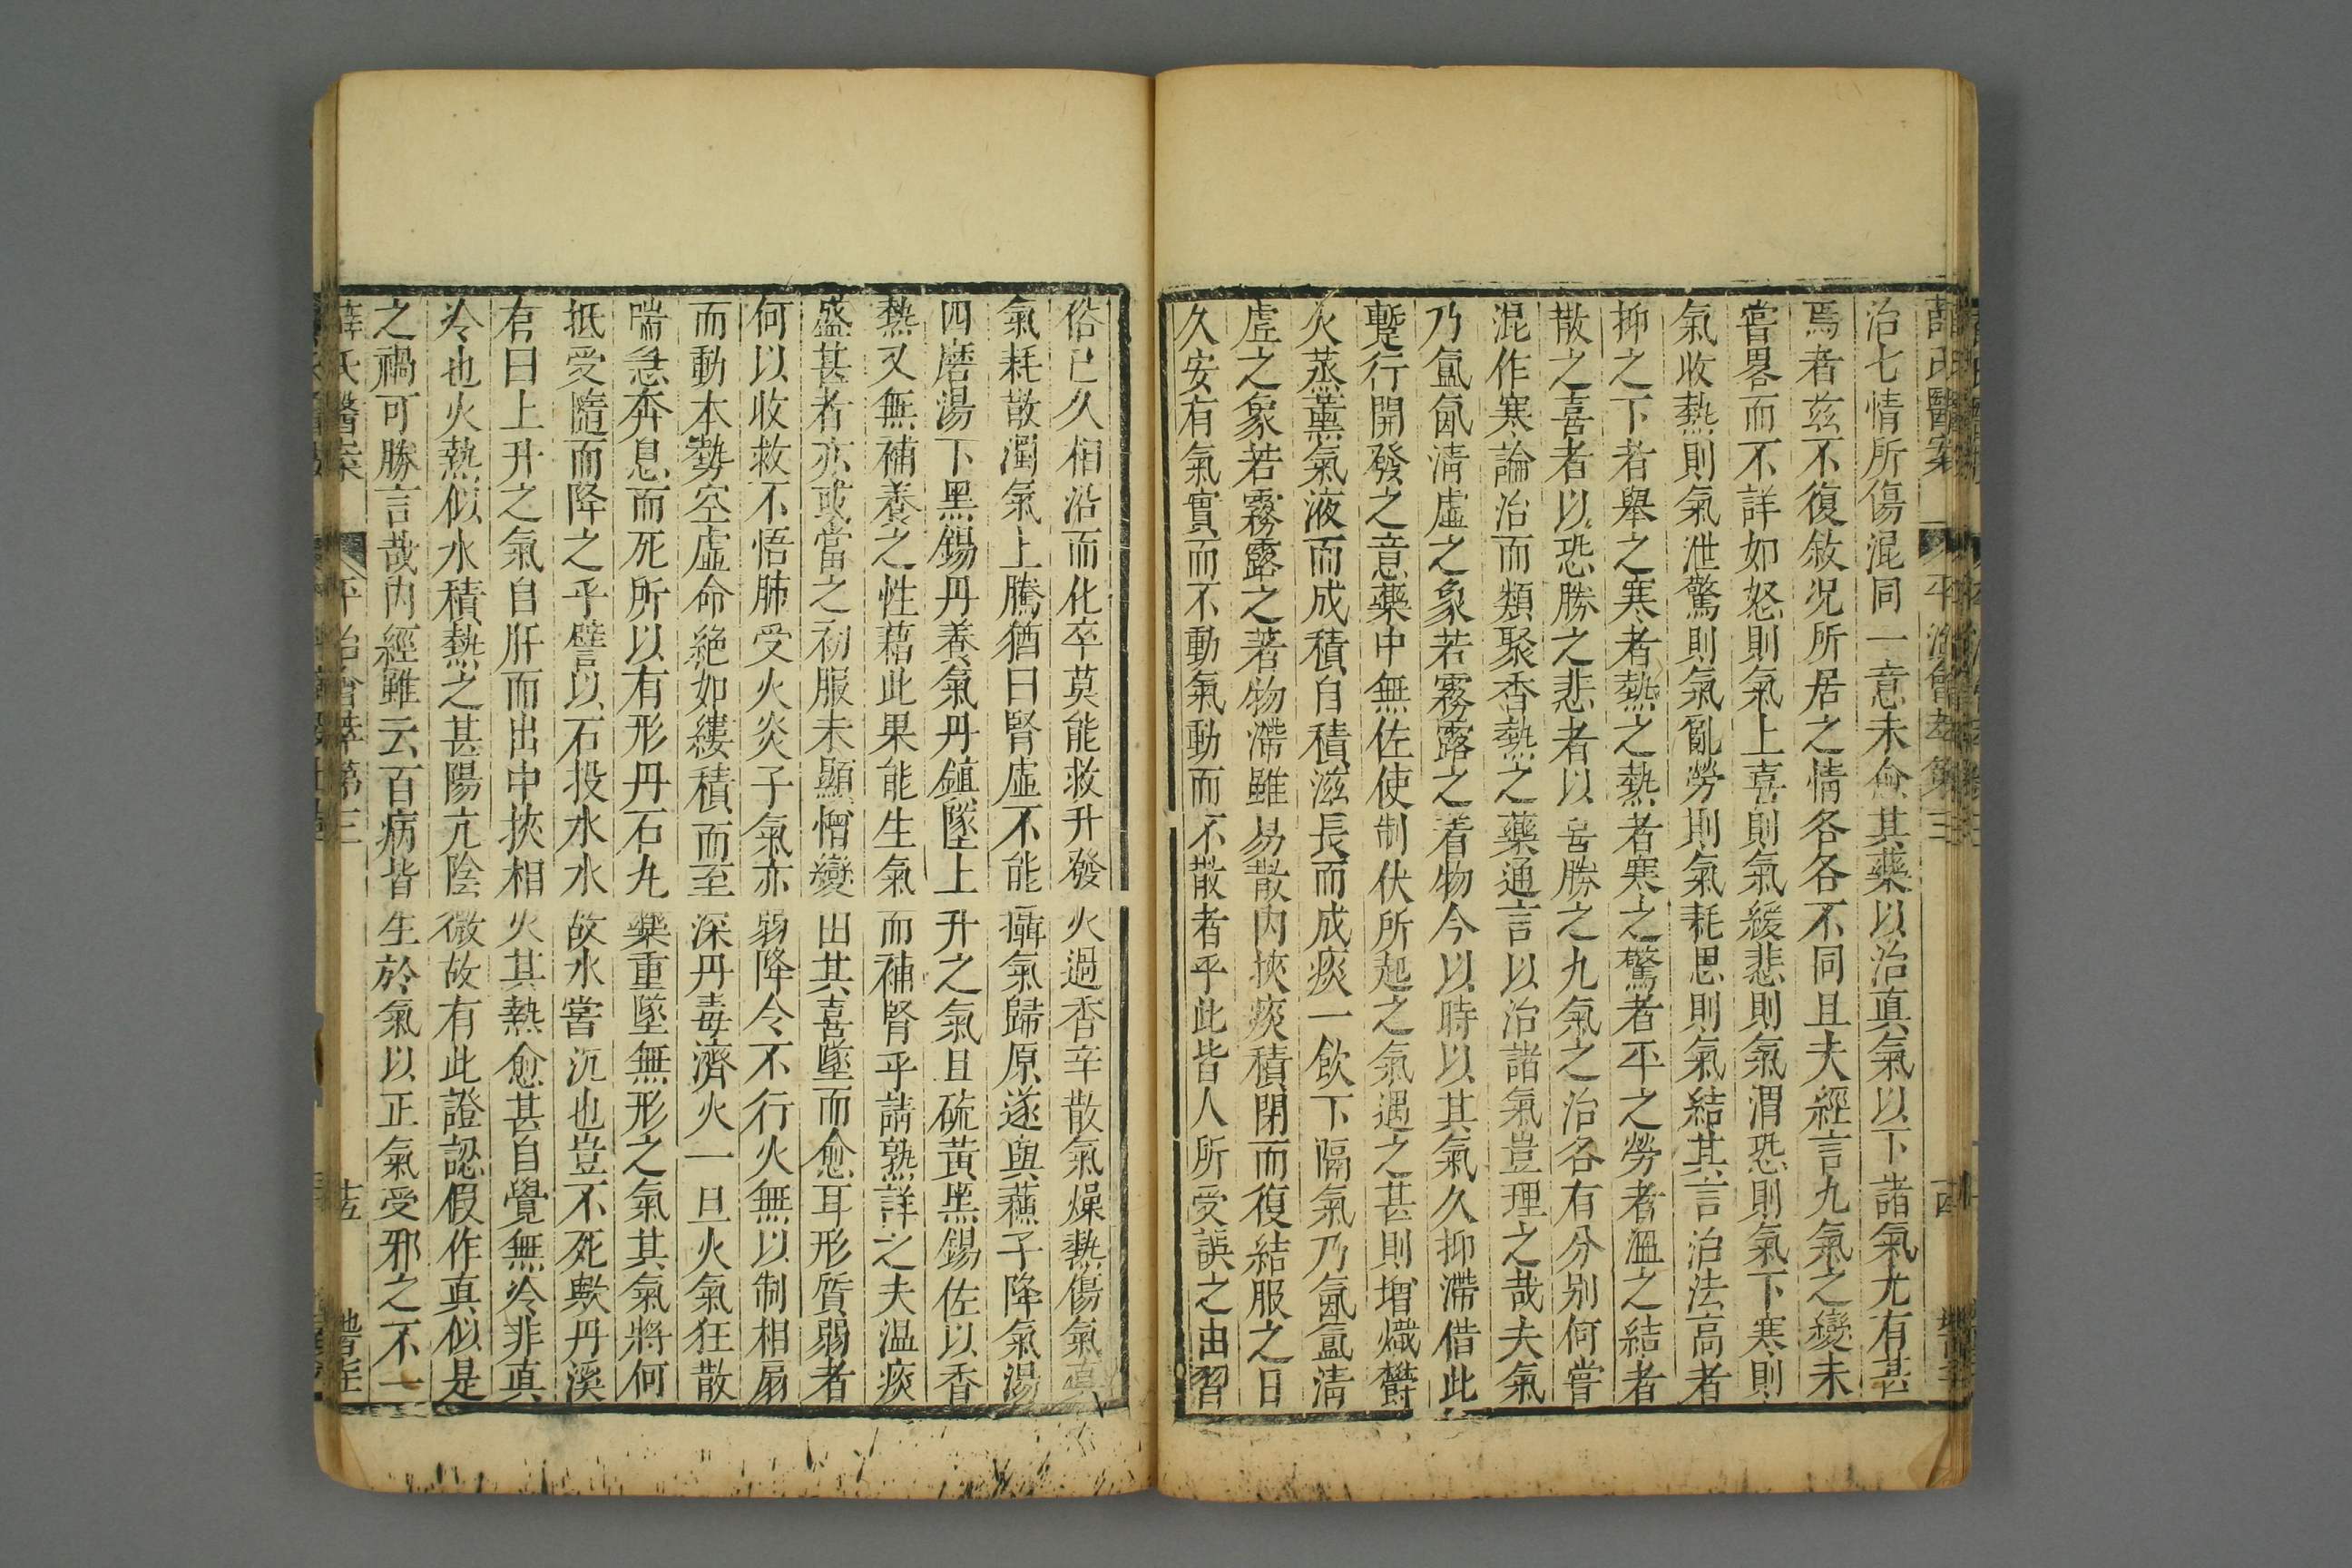 薛氏醫案 平治會萃第三
治七情所傷混同一意未愈其藥以治真氣以下諸氣尤有甚
焉者茲不復敘况所居之情各各不同且夫經言九氣之變未
嘗畧而不詳如怒則氣上喜則氣緩悲則氣消恐則氣下寒則
氣收熱則氣泄驚則氣亂勞則氣耗思則氣結其言治法高者
抑之下者舉之寒者熱之熱者寒之驚者平之勞者溫之結者
散之喜者以恐勝之悲者以喜勝之九氣之治各有分別何嘗
混作寒論治而類聚香熱之藥通言以治諸氣豈理之哉夫氣
乃氤氳清虛之象若霧露之着物今以時以其氣久抑滯借此
蹔行開發之意藥中無佐使制伏所起之氣遇之甚則增熾欝
火蒸薰氣液而成積自積滋長而成痰一飲下隔氣乃氤氳清
虛之象若霧露之著物滯雖易散内挾痰積閉而復結服之日
久安有氣實而不動氣動而不散者乎此皆人所受誤之由習
俗已久相沿而化卒莫能救升發火過香辛散氣燥熱傷氣真
氣耗散濁氣上騰猶曰腎虛不能攝氣歸原遂與蘓子降氣湯
四磨湯下黑錫丹養氣丹鎮墜上升之氣且硫黃黑錫佐以香
熱又無補養之性藉此果能生氣而補腎乎請熟詳之夫温痰
盛甚者亦或當之初服未顯憎變由其喜墜而愈耳形質弱者
何以收救不悟肺受火炎子氣亦弱降令不行火無以制相扇
而動本勢空虛命絶如縷積而至深丹毒濟火一旦火氣狂散
喘急奔息而死所以有形丹石丸藥重墜無形之氣其氣將何
抵受隨而降之乎譬以石投水水故水嘗沉也豈不死歟丹溪
有曰上升之氣自肝而出中挾相火其熱愈甚自覺無冷非真
冷也火熱似水積熱之甚陽亢陰微故有此證認假作真似是
之禍可勝言哉内經雖云百病皆生於氣以正氣受邪之不一
薛氏醫案 平治會萃第三